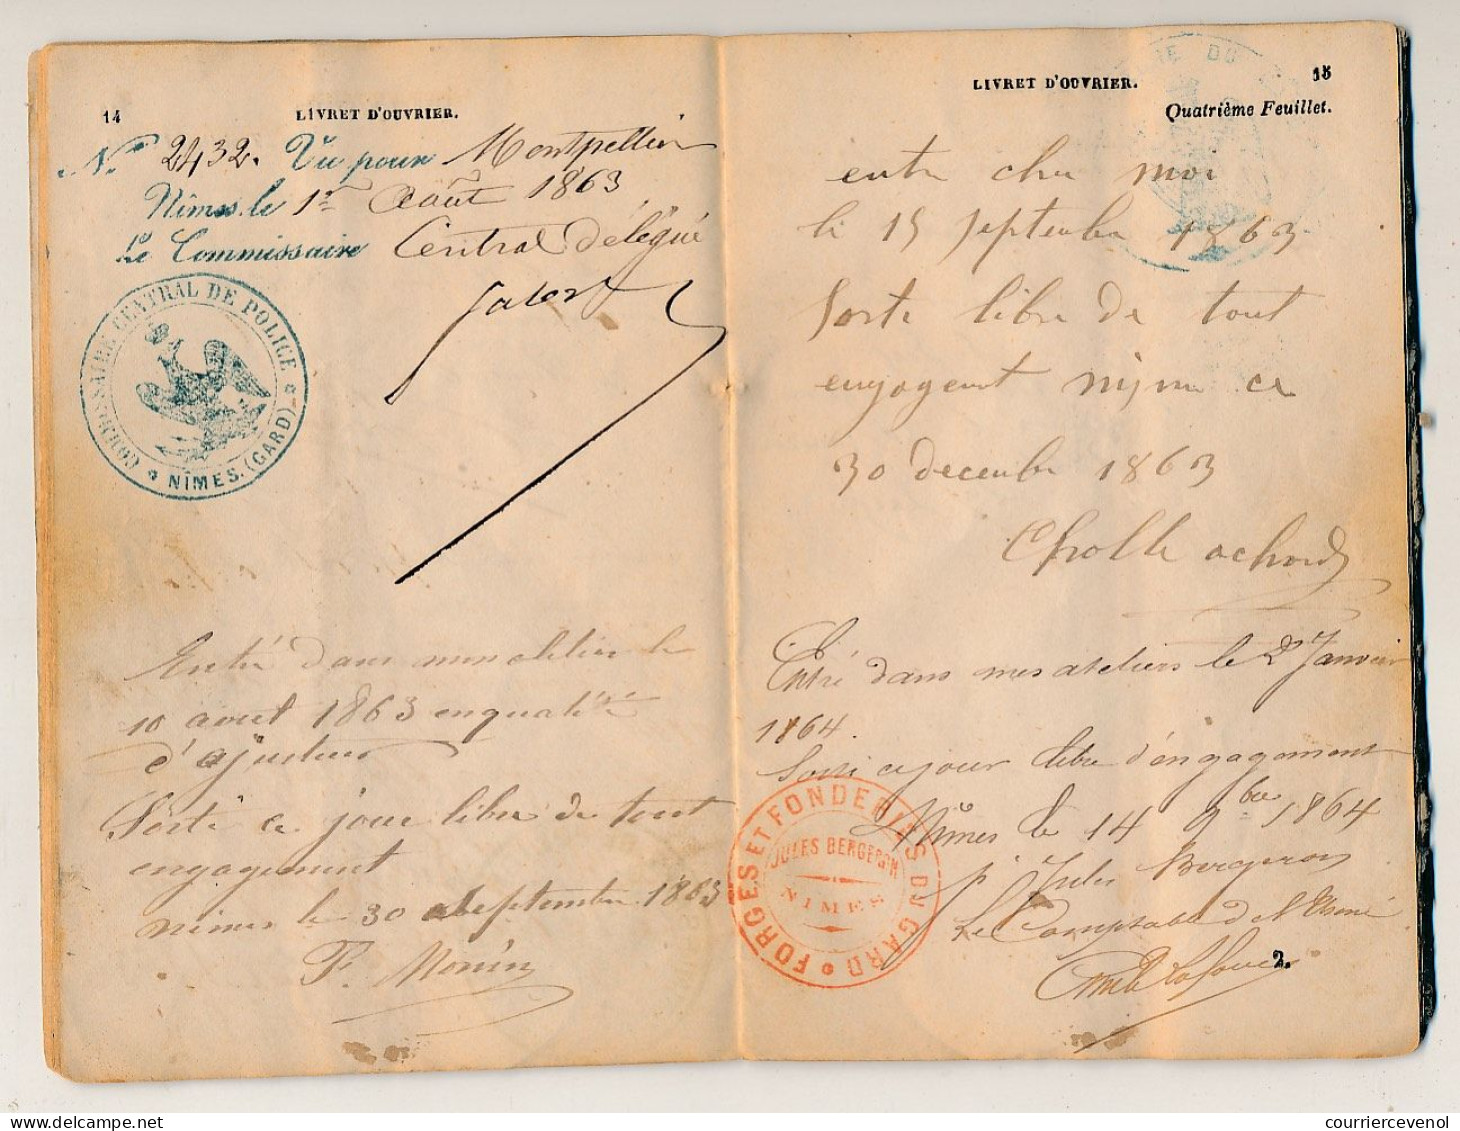 14 LIVRET D'OUVRIER.
N.º 2432. Vu pour Montpellier
Nîmes, le 1er Août 1863
Le Commissaire Central Délégué
COMMISSAIRE CENTRAL DE POLICE
NÎMES. (GARD)
Entré dans mon atelier le
10 aout 1863 en qualité
d'ajusteur
Sorti ce jour libre de tout
engagement
nimes le 30 Septembre 1863
F. Monin
LIVRET D'OUVRIER. 15
Quatrième Feuillet.
IE DU
entre chez moi
le 15 septembre 1863
Sorti libre de tout
engagent nime ce
30 decembre 1863
Entré dans mes ateliers le 2 Janvier
1864.
Sorti ce jour libre d'engagement
Nîmes le 14 9bre 1864
pr Jules Bergeron
Le Comptable de l'Usine
2.
FORGES ET FONDERIES DU GARD
JULES BERGERON
NIMES
courriercevenol